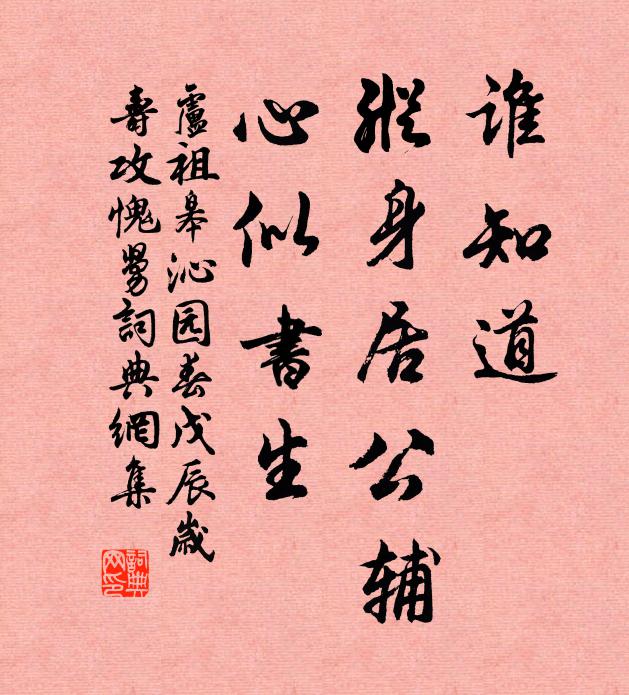 谁知道
縱身居公輔
心似書生
盧祖皋沁园春戊辰歲
壽攻愧舅詞典網集
詞典
网印